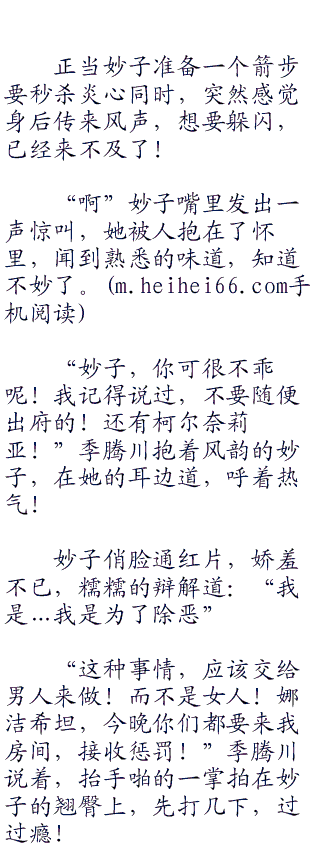 正当妙子准备一个箭步
要秒杀炎心同时，突然感觉
身后传来风声，想要躲闪，
已经来不及了！
“啊”妙子嘴里发出一
声惊叫，她被人抱在了怀
里，闻到熟悉的味道，知道
不妙了。(m.heihei66.com手
机阅读)
“妙子，你可很不乖
呢！我记得说过，不要随便
出府的！还有柯尔奈莉
亚！”季腾川抱着风韵的妙
子，在她的耳边道，呼着热
气！
妙子俏脸通红片，娇羞
不已，糯糯的辩解道：“我
是…我是为了除恶”
“这种事情，应该交给
男人来做！而不是女人！娜
洁希坦，今晚你们都要来我
房间，接收惩罚！”季腾川
说着，抬手啪的一掌拍在妙
子的翘臀上，先打几下，过
过瘾！